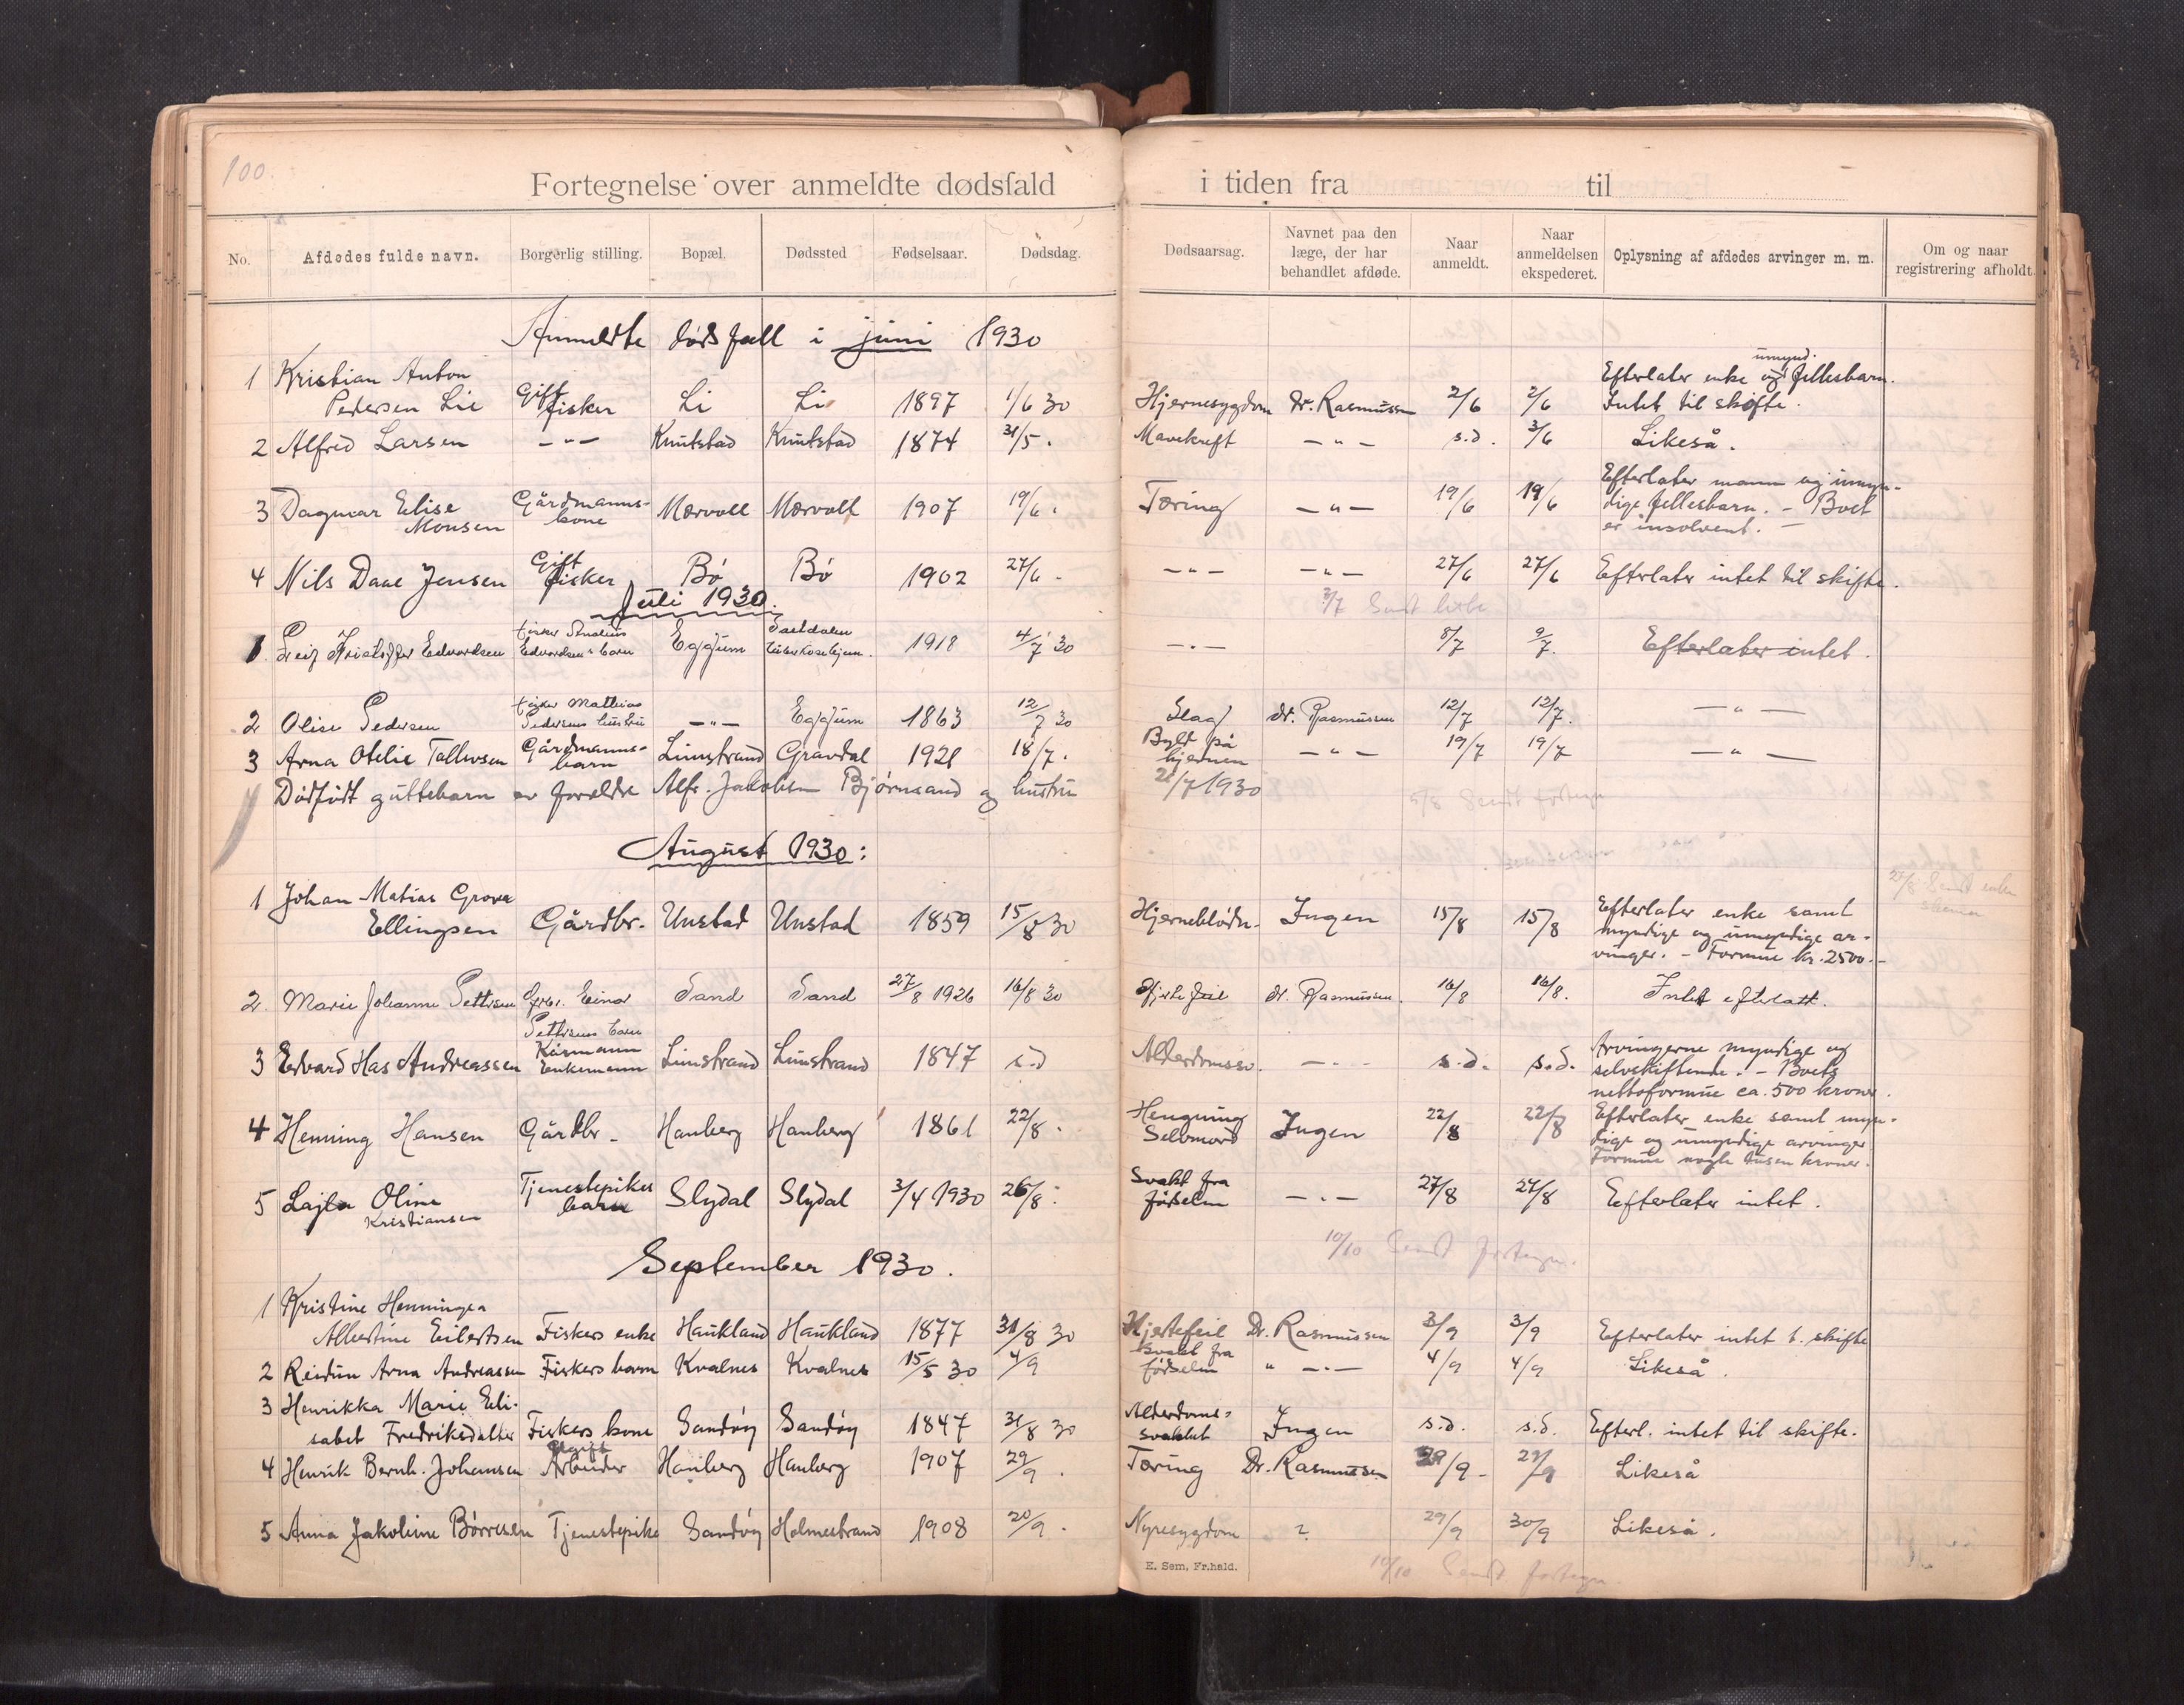 100.
Fortegnelse over anmeldte dødsfald i tiden fra til
No. Afdødes fulde navn. Borgerlig stilling. Bopæl. Dødssted Fødselsaar. Dødsdag. Dødsaarsag. Navnet paa den læge, der har behandlet afdøde. Naar anmeldt. Naar anmeldelsen ekspederet. Oplysning af afdødes arvinger m. m. Om og naar registrering afholdt.
Anmeldte dødsfall i juni 1930
umynd.
1 Kristian Anton Efterlater enke og fellesbarn.
Pedersen Lie Gift fisker Li Li 1897 1/6 30 Hjernesygdom dr. Rasmussen 2/6 2/6 Intet til skifte.
2 Alfred Larsen — " — Knutstad Knutstad 1874 31/5. Mavekreft — " — s.d. 3/6 Likeså.
Efterlater mann og umyn-
3 Dagmar Elise Gårdmanns- Mærvoll Mærvoll 1907 19/6. Tæring — " — 19/6 19/6 dige fellesbarn. - Boet
Monsen kone er insolvent. —
4 Nils Daae Jensen Gift fisker Bø Bø 1902 27/6. — " — — " — 27/6 27/6 Efterlater intet til skifte.
Juli 1930. 3/7 Sendt
1. Leif Fridtjof Edvardsen fisker Edvardsens barn Eggum 1918 4/7 30 — " — 8/7 9/7. Efterlater intet.
2 Olise Pedersen fisker Mathias Pedersens hustru — " — Eggum 1863 12/7 30 Slag dr. Rasmussen 12/7 12/7. — " —
3 Arna Otelie Tollevsen Gårdmanns- barn Limstrand Gravdal 1921 18/7. Byld på hjernen — " — 19/7 19/7 — " —
Dødfødt guttebarn av foreldre Alfr. Jakobsen Bjørnsand og hustru 21/7 1930 5/8 Sendt fortegn
August 1930:
1 Johan Matias Grove Efterlater enke samt
Ellingsen Gårdbr. Unstad Unstad 1859 15/8 30 Hjerneblødn. Ingen 15/8 15/8 myndige og umyndige ar-
vinger. - Formue kr. 2500.-
2. Marie Johanne Pettersen Gbr. Einar Pettersens barn Sand Sand 27/8 1926 16/8 30 Hjertefeil dr. Rasmussen. 16/8 16/8. Intet efterlatt.
Arvingerne myndige og
3 Edvard Has Andreassen Kårmann Enkemann Limstrand Limstrand 1847 s.d Alderdomssv. — " — s.d. s.d. selvskiftende. - Boets
nettoformue ca. 500 kroner.
4 Henning Hansen Gårdbr. Hauberg Hauberg 1861 22/8. Hengning Selvmord Ingen 22/8 22/8 Efterlater enke samt myn-
dige og umyndige arvinger
Formue nogle tusen kroner.
5 Lajla Oline Tjenestepikes barn Slydal Slydal 3/4 1930 26/8. Svakt fra fødselen — " — 27/8 27/8 Efterlater intet.
Kristiansen
10/10 Sendt fortegn.
September 1930.
1 Kristine Henningea
Albertine Eilertsen Fiskers enke Haukland Haukland 1877 31/8 30 Hjertefeil Dr. Rasmussen 3/9 3/9 Efterlater intet t. skifte
2 Reidun Arna Andreassen Fiskers barn Kvalnes Kvalnes 15/5 30 4/9 Svakt fra fødselen " — " — 4/9 4/9 Likeså.
3 Henrikka Marie Eli-
sabet Fredriksdatter Fiskers kone Sandøy Sandøy 1847 31/8 30 Alderdoms- svakhet Ingen s.d. s.d. Efterl. intet til skifte.
4 Henrik Bernh. Johansen Ugift Arbeider Hauberg Hauberg 1907 29/9. Tæring Dr. Rasmussen 29/9 - 29/9 Likeså
5 Anna Jakobine Børresen Tjenestepike Sandøy Holmestrand 1908 20/9. Nyresygdom ? 29/9 30/9 Likeså.
E. Sem, Fr.hald.
10/10 Sendt fortegn.